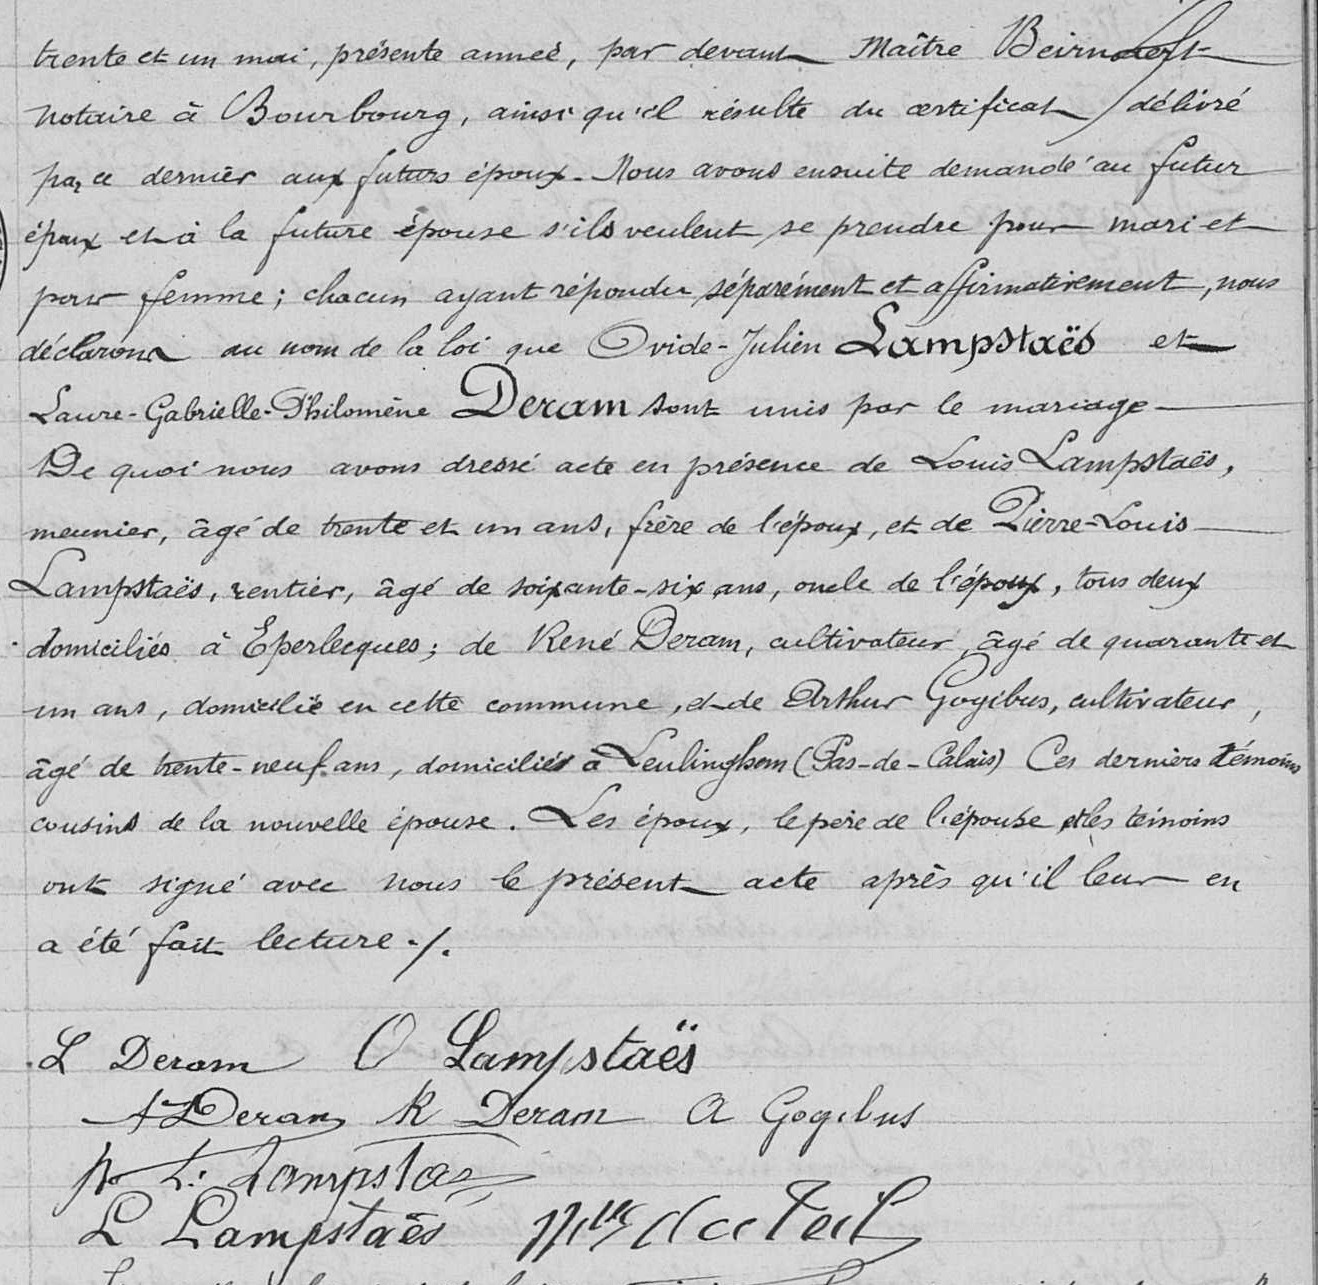 trente et un mai, présente anneé, par devant Maître Beirnaert
notaire à Bourbourg, ainsi qu'il résulte du certificat délivré
par ce dernier aux futurs époux - Nous avons ensuite demandé au futur
époux et à la future épouse s'ils veulent se prendre pour mari et
pour femme; chacun ayant répondu séparément et affirmativement, nous
déclarons au nom de la loi que Ovide-Julien Lampstaës et
Laure-Gabrielle-Philomène Deram sont unis par le mariage
De quoi nous avons dressé acte en présence de Louis Lampstaës,
meunier, âgé de trente et un ans, frère de l'époux, et de Pierre-Louis
Lampstaës, rentier, âgé de soixante-six ans, oncle de l'époux, tous deux
domiciliés à Eperlecques; de René Deram, cultivateur, âgé de quarante et
un ans, domicilié en cette commune, et de Arthur Gogibus, cultivateur,
âgé de trente-neuf ans, domicilié à Leulinghem (Pas-de-Calais) Ces derniers témoins
cousins de la nouvelle épouse. Les époux, le père de l'épouse et les témoins
ont signé avec nous le présent acte après qu'il leur en
a été fait lecture ./.
L Deram O Lampstaës
A Deram R Deram A Gogibus
p. L. Lampstaes
L Lampstaës